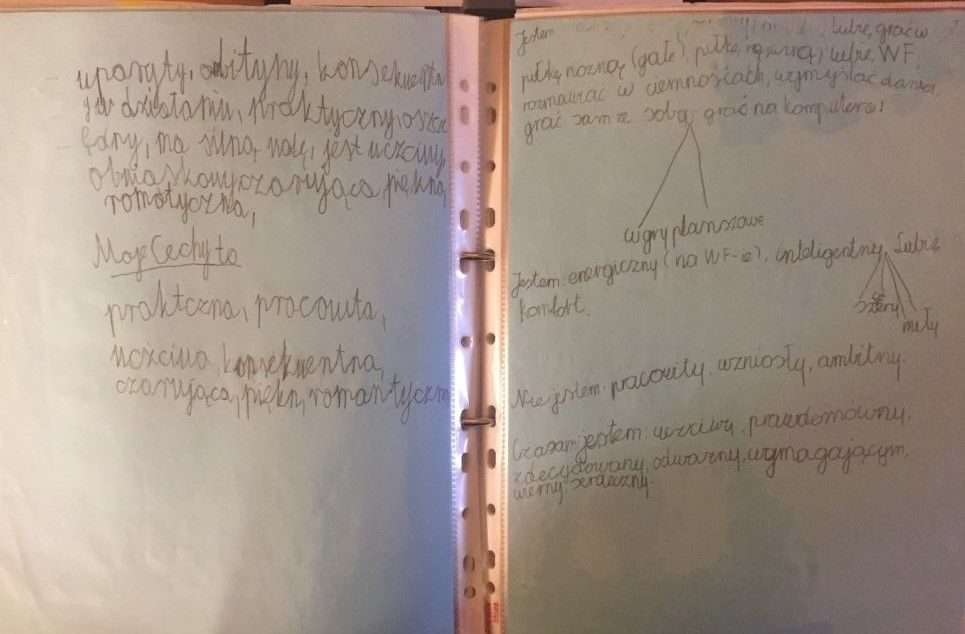 uparyty, ambityny, konsekwentn
y w działaniu, praktyczny, oszcz
ędny, ma silną wolę, jest uczciwy,
czarująca, piękna,
romotyczna,
Moje Cechy to
praktczna, pracowita,
uczciwa, konsekwentna,
czarująca, piękn, romantyczna
Jestem lubię grać w
piłkę nożną (gałe), piłkę ręczną, lubię WF.
rozmawiać w ciemnościach, wymyślać dania,
grać sam ze sobą, grać na komputerze!
w gry planszowe
Jestem: energiczny (na WF-ie), inteligentny, Lubię
Komfort.
szczery
miły
Nie jestem: pracowity, wzniosły, ambitny.
Czasami jestem: uczciwy, prawdomówny,
zdecydowany, odważny, wymagającym,
wierny, serdeczny.